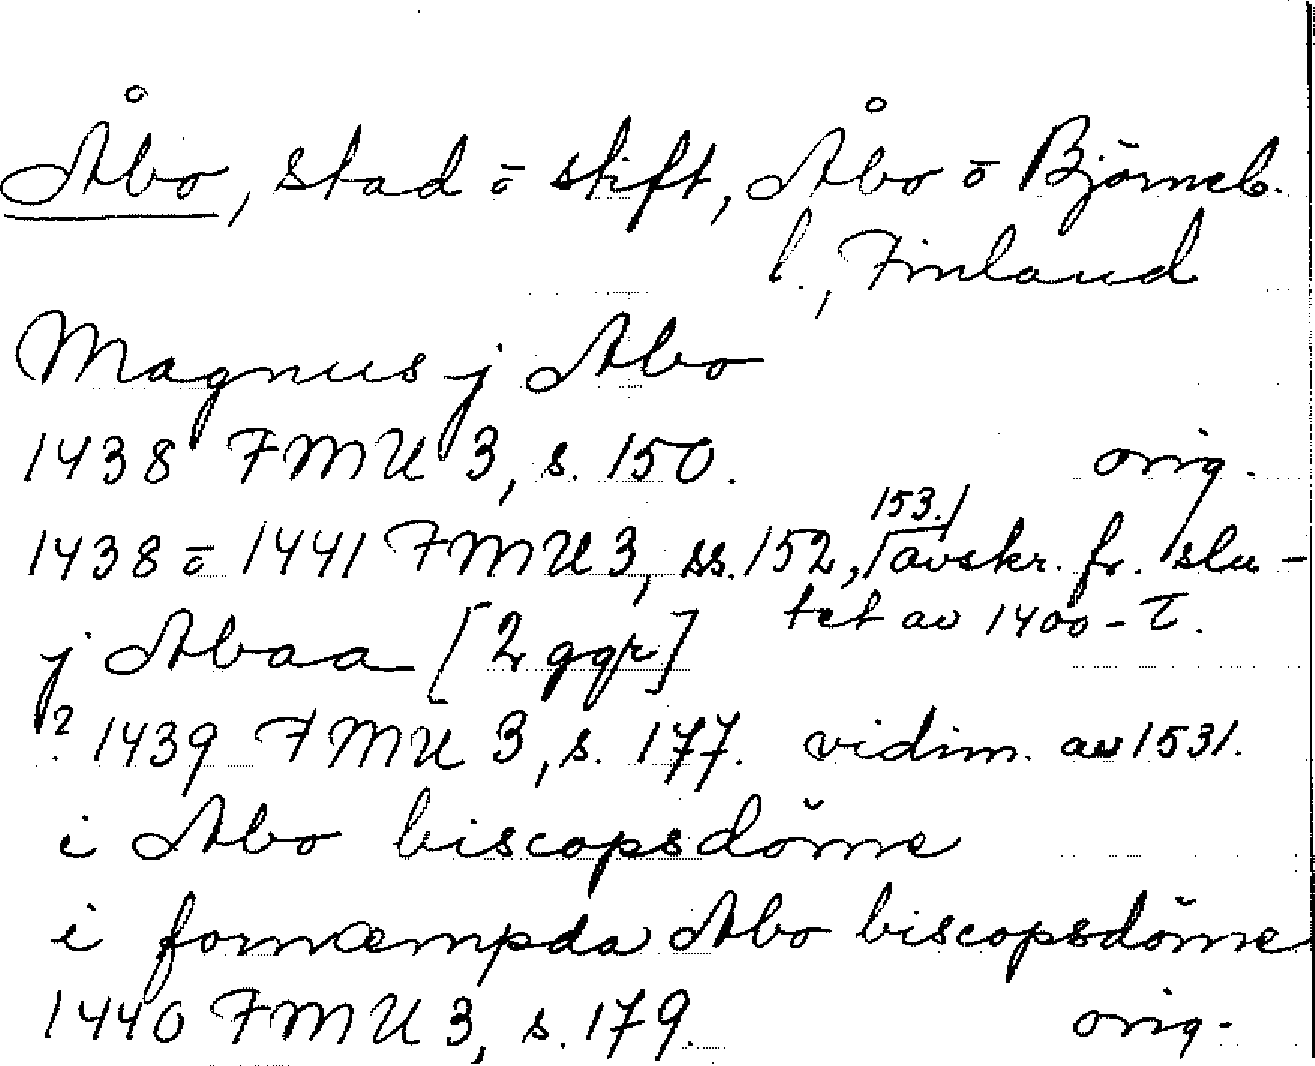 Åbo, stad o stift, Åbo o Björneb.
l., Finland
Magnus j Abo
1438 FMU 3, s. 150. orig.
1438 o 1441 FMU 3, ss. 152, 153. / avskr. fr. slu-
tet av 1400-t.
j Abaa [2 ggr]
? 1439 FMU 3, s. 177. vidim. av 1531.
i Abo biscopsdöme
i fornæmpda Abo biscopsdöme
1440 FMU 3, s. 179. orig.